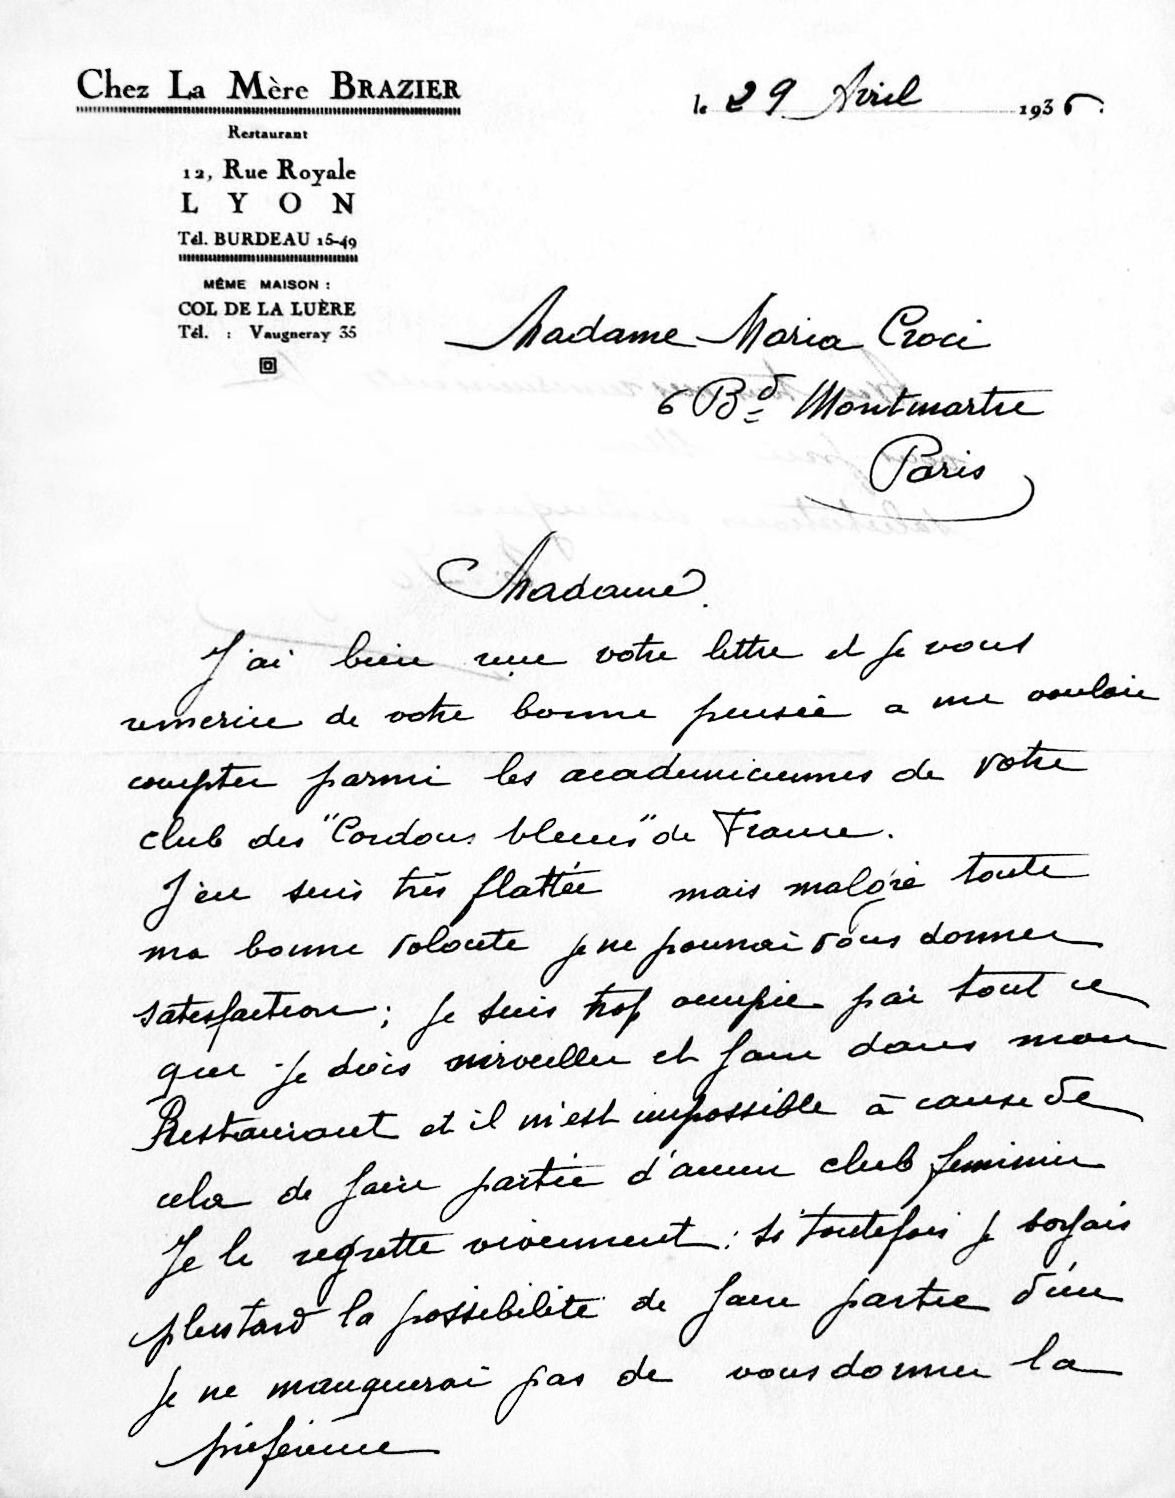 Chez La Mère BRAZIER
Restaurant
12, Rue Royale
LYON
Tél. BURDEAU 15-49
MÊME MAISON :
COL DE LA LUÈRE
Tél. : Vaugneray 35
le 29 Avril 1936.
Madame Maria Croci
6 Bd Montmartre
Paris
Madame.
J'ai bien reçue votre lettre et je vous
remercie de votre bonne pensée a me vouloir
compter parmi les academiciennes de votre
club des "Cordons bleues" de France.
J'en suis très flattée mais malgré toute
ma bonne volonte je ne pourrai vous donner
satisfaction ; je suis trop occupée par tout ce
que je dois surveiller et faire dans mon
Restaurant et il m'est impossible à cause de
cela de faire partie d'aucun club feminin
Je le regrette vivement : si toutefois je voyais
plus tard la possibilite de faire partie d'un
je ne manquerai pas de vous donner la
préférence